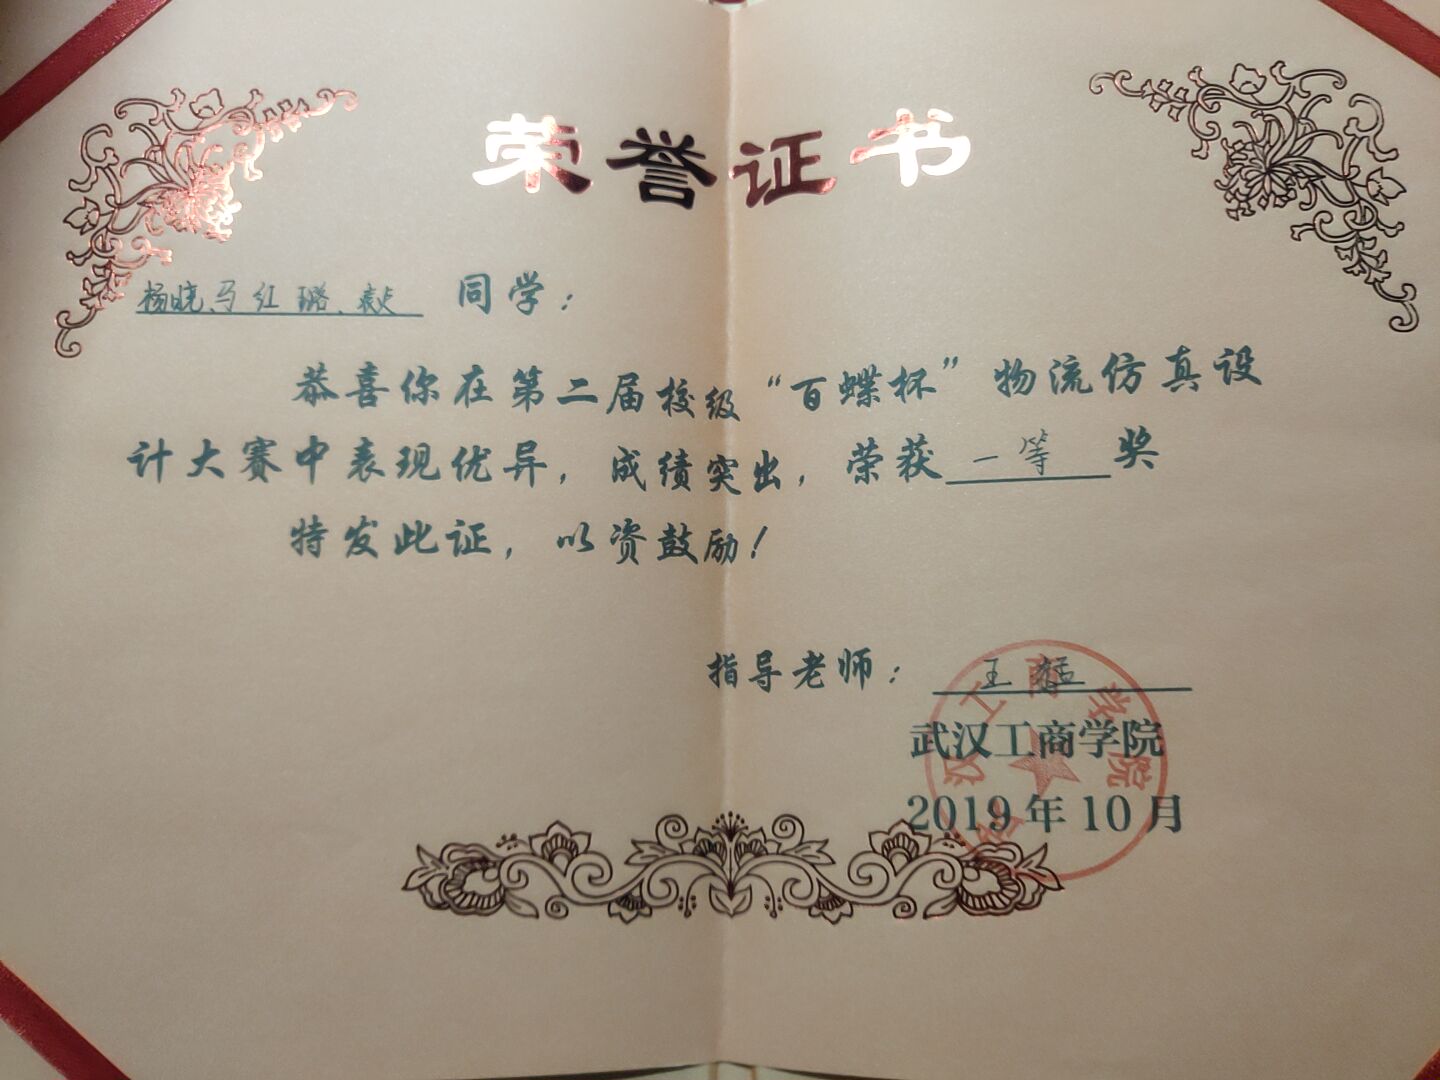 荣誉证书
杨晓、马红璐、 同学：
恭喜你在第二届校级“百蝶杯”物流仿真设
计大赛中表现优异，成绩突出，荣获一等奖
特发此证，以资鼓励！
指导老师：王猛
武汉工商学院
2019年10月
武汉工商学院